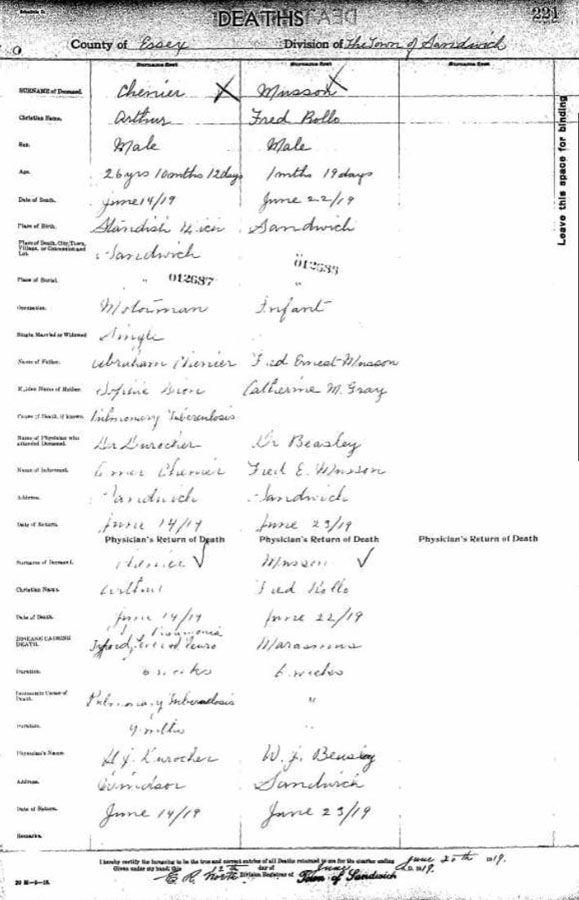 DEATHS
221
County of Essex Division of The Town of Sandwich
Surname first Surname first Surname first
SURNAME of Deceased. Chenier Musson
Christian Name. Arthur Fred Rollo
Sex. Male Male
Age. 26 yrs 10 mths 12 days 1 mths 19 days
Date of Death. June 14/19 June 22/19
Place of Birth. Standish Mich Sandwich
Place of Death, City, Town, Village, or Concession and Lot. Sandwich
Place of Burial. " 012687 "
Occupation. Motorman Infant
Single, Married or Widowed Single
Name of Father. Abraham Chenier Fred Ernest Musson
Maiden Name of Mother. Catherine M. Gray
Cause of Death, if known. Pulmonary Tuberculosis
Name of Physician who attended Deceased. Dr Durocher Dr Beasley
Name of Informant. Chenier Fred E. Musson
Address. Sandwich Sandwich
Date of Return. June 14/19 June 23/19
Physician's Return of Death Physician's Return of Death Physician's Return of Death
Surname of Deceased. Chenier Musson
Christian Name. Arthur Fred Rollo
Date of Death. June 14/19 June 22/19
DISEASE CAUSING DEATH. Pneumonia Marasmus
Duration. 6 weeks
Pulmonary Tuberculosis "
Duration. mths
Physician's Name. Durocher W. J. Beasley
Address. Windsor Sandwich
Date of Return. June 14/19 June 23/19
Remarks.
I hereby certify the foregoing to be the true and correct entries of all Deaths returned to me for the quarter ending June 1919.
Given under my hand, this day of A.D. 1919.
E. R. North Division Registrar of Town of Sandwich
Leave this space for binding